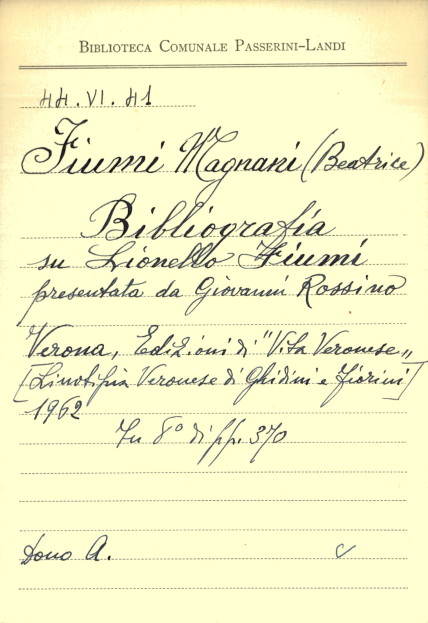 BIBLIOTECA COMUNALE PASSERINI-LANDI
44.VI.41
Fiumi Magnani (Beatrice)
Bibliografia
su Lionello Fiumi
presentata da Giovanni Rossino
Verona, Edizioni di "Vita Veronese„
[Linotipia Veronese di Ghidini e Fiorini]
1962
In 8° di pp. 370
Dono A.